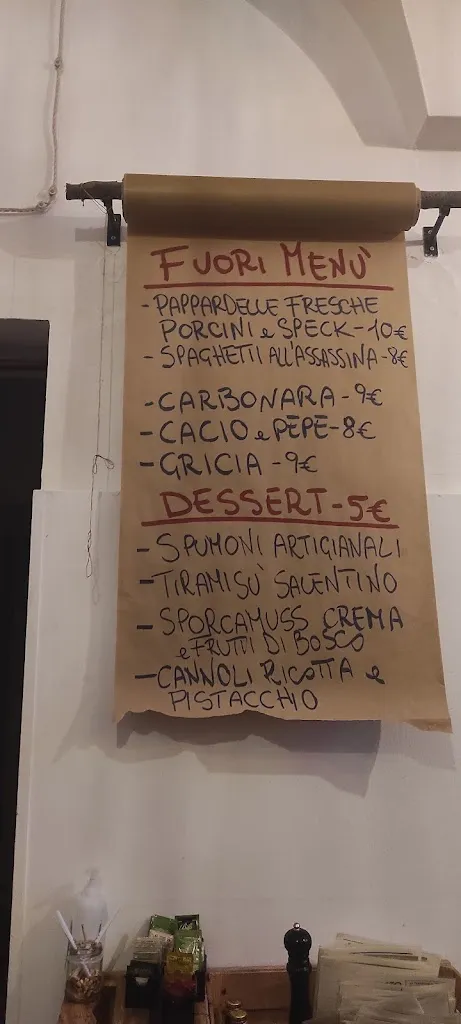 FUORI MENÙ
-PAPPARDELLE FRESCHE
PORCINI e SPECK-10€
-SPAGHETTI ALL'ASSASSINA-8€
-CARBONARA-9€
-CACIO e PEPE-8€
-GRICIA-9€
DESSERT-5€
-SPUMONI ARTIGIANALI
-TIRAMISÙ SALENTINO
-SPORCAMUSS CREMA
e FRUTTI DI BOSCO
-CANNOLI RICOTTA e
PISTACCHIO